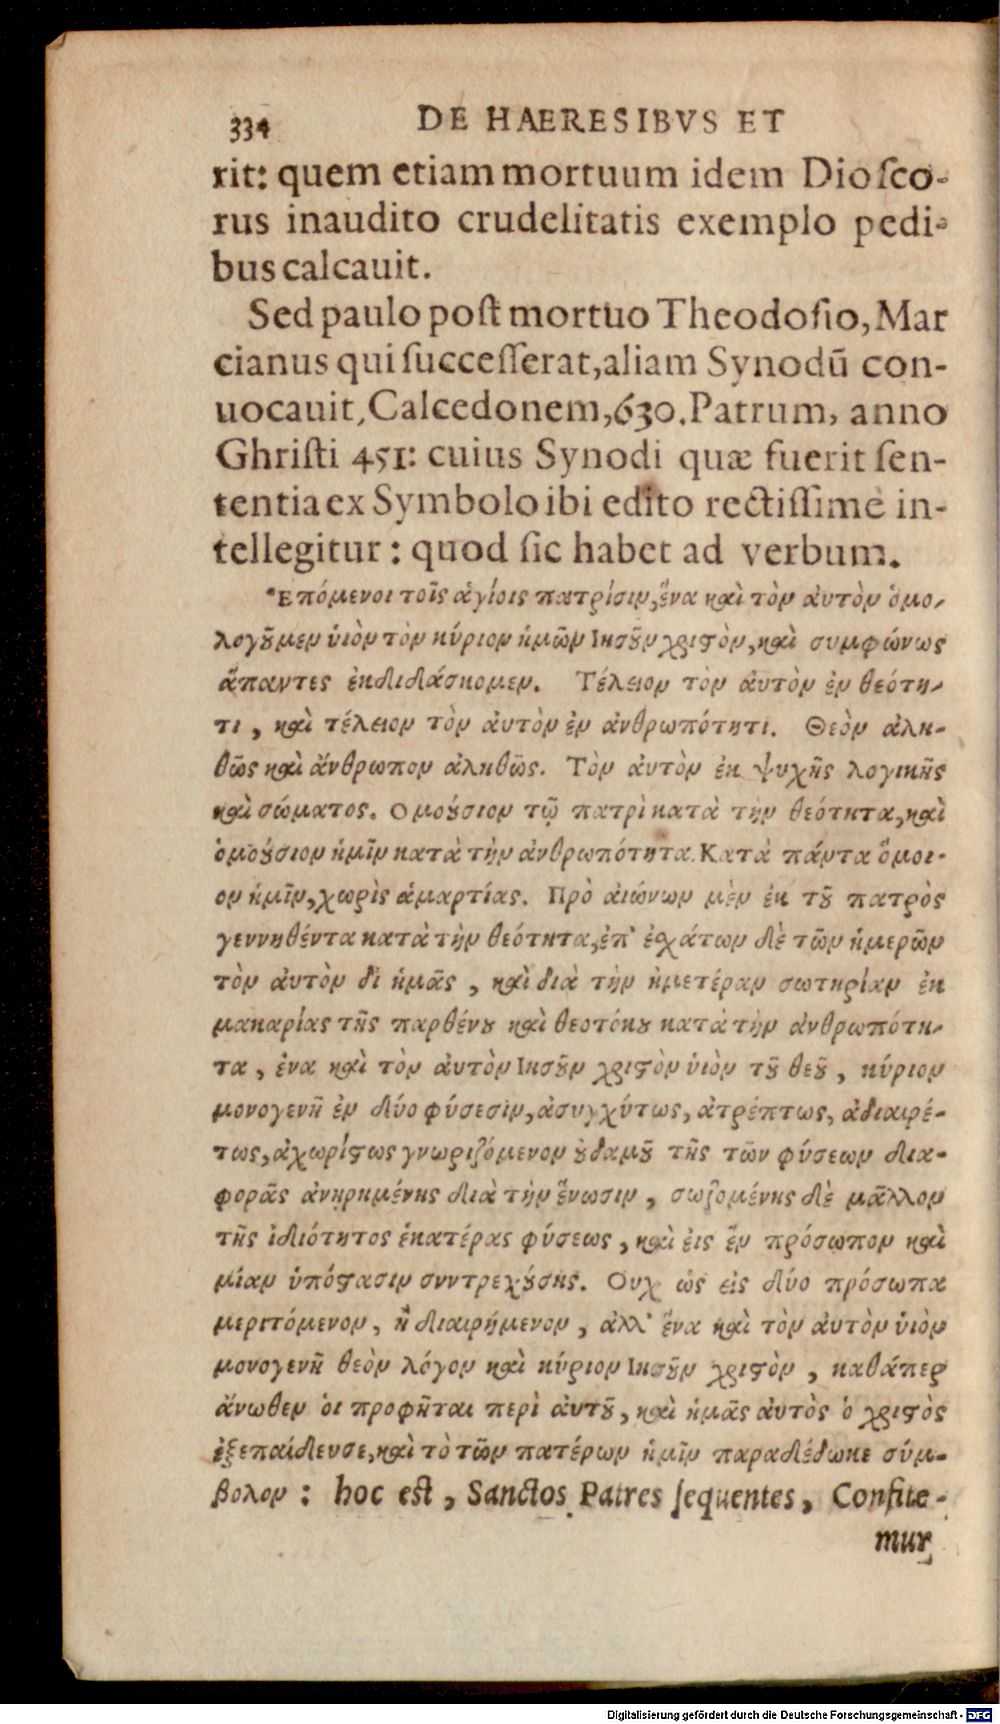 334 DE HAERESIBVS ET
rit: quem etiam mortuum idem Dioſco-
rus inaudito crudelitatis exemplo pedi-
bus calcauit.
Sed paulo poſt mortuo Theodoſio, Mar
cianus qui ſucceſſerat, aliam Synodū con-
uocauit, Calcedonem, 630. Patrum, anno
Ghriſti 451: cuius Synodi quæ fuerit ſen-
tentia ex Symbolo ibi edito rectiſſimè in-
tellegitur: quod ſic habet ad verbum.
Ἑπόμενοι τοῖς ἁγίοις πατρίσιν, ἕνα καὶ τὸν ἀυτὸν ὁμο-
λογοῦμεν ὑιὸν τὸν κύριον ἡμῶν Ιησοῦν χριστὸν, καὶ συμφώνως
ἅπαντες ἐκδιδάσκομεν. Τέλειον τὸν ἀυτὸν ἐν θεότη-
τι, καὶ τέλειον τὸν ἀυτὸν ἐν ἀνθρωπότητι. Θεὸν ἀλη-
θῶς καὶ ἄνθρωπον ἀληθῶς. Τὸν ἀυτὸν ἐκ ψυχῆς λογικῆς
καὶ σώματος. Ομούσιον τῷ πατρὶ κατὰ τὴν θεότητα, καὶ
ὁμούσιον ἡμῖν κατὰ τὴν ἀνθρωπότητα. Κατὰ πάντα ὅμοι-
ον ἡμῖν, χωρὶς ἁμαρτίας. Πρὸ αἰώνων μὲν ἐκ τοῦ πατρὸς
γεννηθέντα κατὰ τὴν θεότητα, ἐπ' ἐσχάτων δὲ τῶν ἡμερῶν
τὸν ἀυτὸν δι ἡμᾶς, καὶ διὰ τὴν ἡμετέραν σωτηρίαν ἐκ
μακαρίας τῆς παρθένου καὶ θεοτόκου κατὰ τὴν ἀνθρωπότη-
τα, ἑνα καὶ τὸν ἀυτὸν Ιησοῦν χριστὸν ὑιὸν τοῦ θεοῦ, κύριον
μονογενῆ ἐν δύο φύσεσιν, ἀσυγχύτως, ἀτρέπτως, ἀδιαιρέ-
τως, ἀχωρίστως γνωριζόμενον ὀυδαμοῦ τῆς τῶν φύσεων δια-
φορᾶς ἀνῃρημένης διὰ τὴν ἕνωσιν, σωζομένης δὲ μᾶλλον
τῆς ἰδιότητος ἑκατέρας φύσεως, καὶ ἐις ἓν πρόσωπον καὶ
μίαν ὑπόστασιν συντρεχούσης. Ουχ ὡς εἰς δύο πρόσωπα
μεριτόμενον, ἢ διαιρήμενον, ἀλλ' ἕνα καὶ τὸν ἀυτὸν ὑιὸν
μονογενῆ θεὸν λόγον καὶ κύριον Ιησοῦν χριστὸν, καθάπερ
ἄνωθεν ὁι προφῆται περὶ ἀυτοῦ, καὶ ἡμᾶς ἀυτὸς ὁ χριστὸς
ἐξεπαίδευσε, καὶ τὸ τῶν πατέρων ἡμῖν παραδέδωκε σύμ-
βολον: hoc eſt, Sanctos Patres ſequentes, Confite-
mur
Digitalisierung gefördert durch die Deutsche Forschungsgemeinschaft - DFG